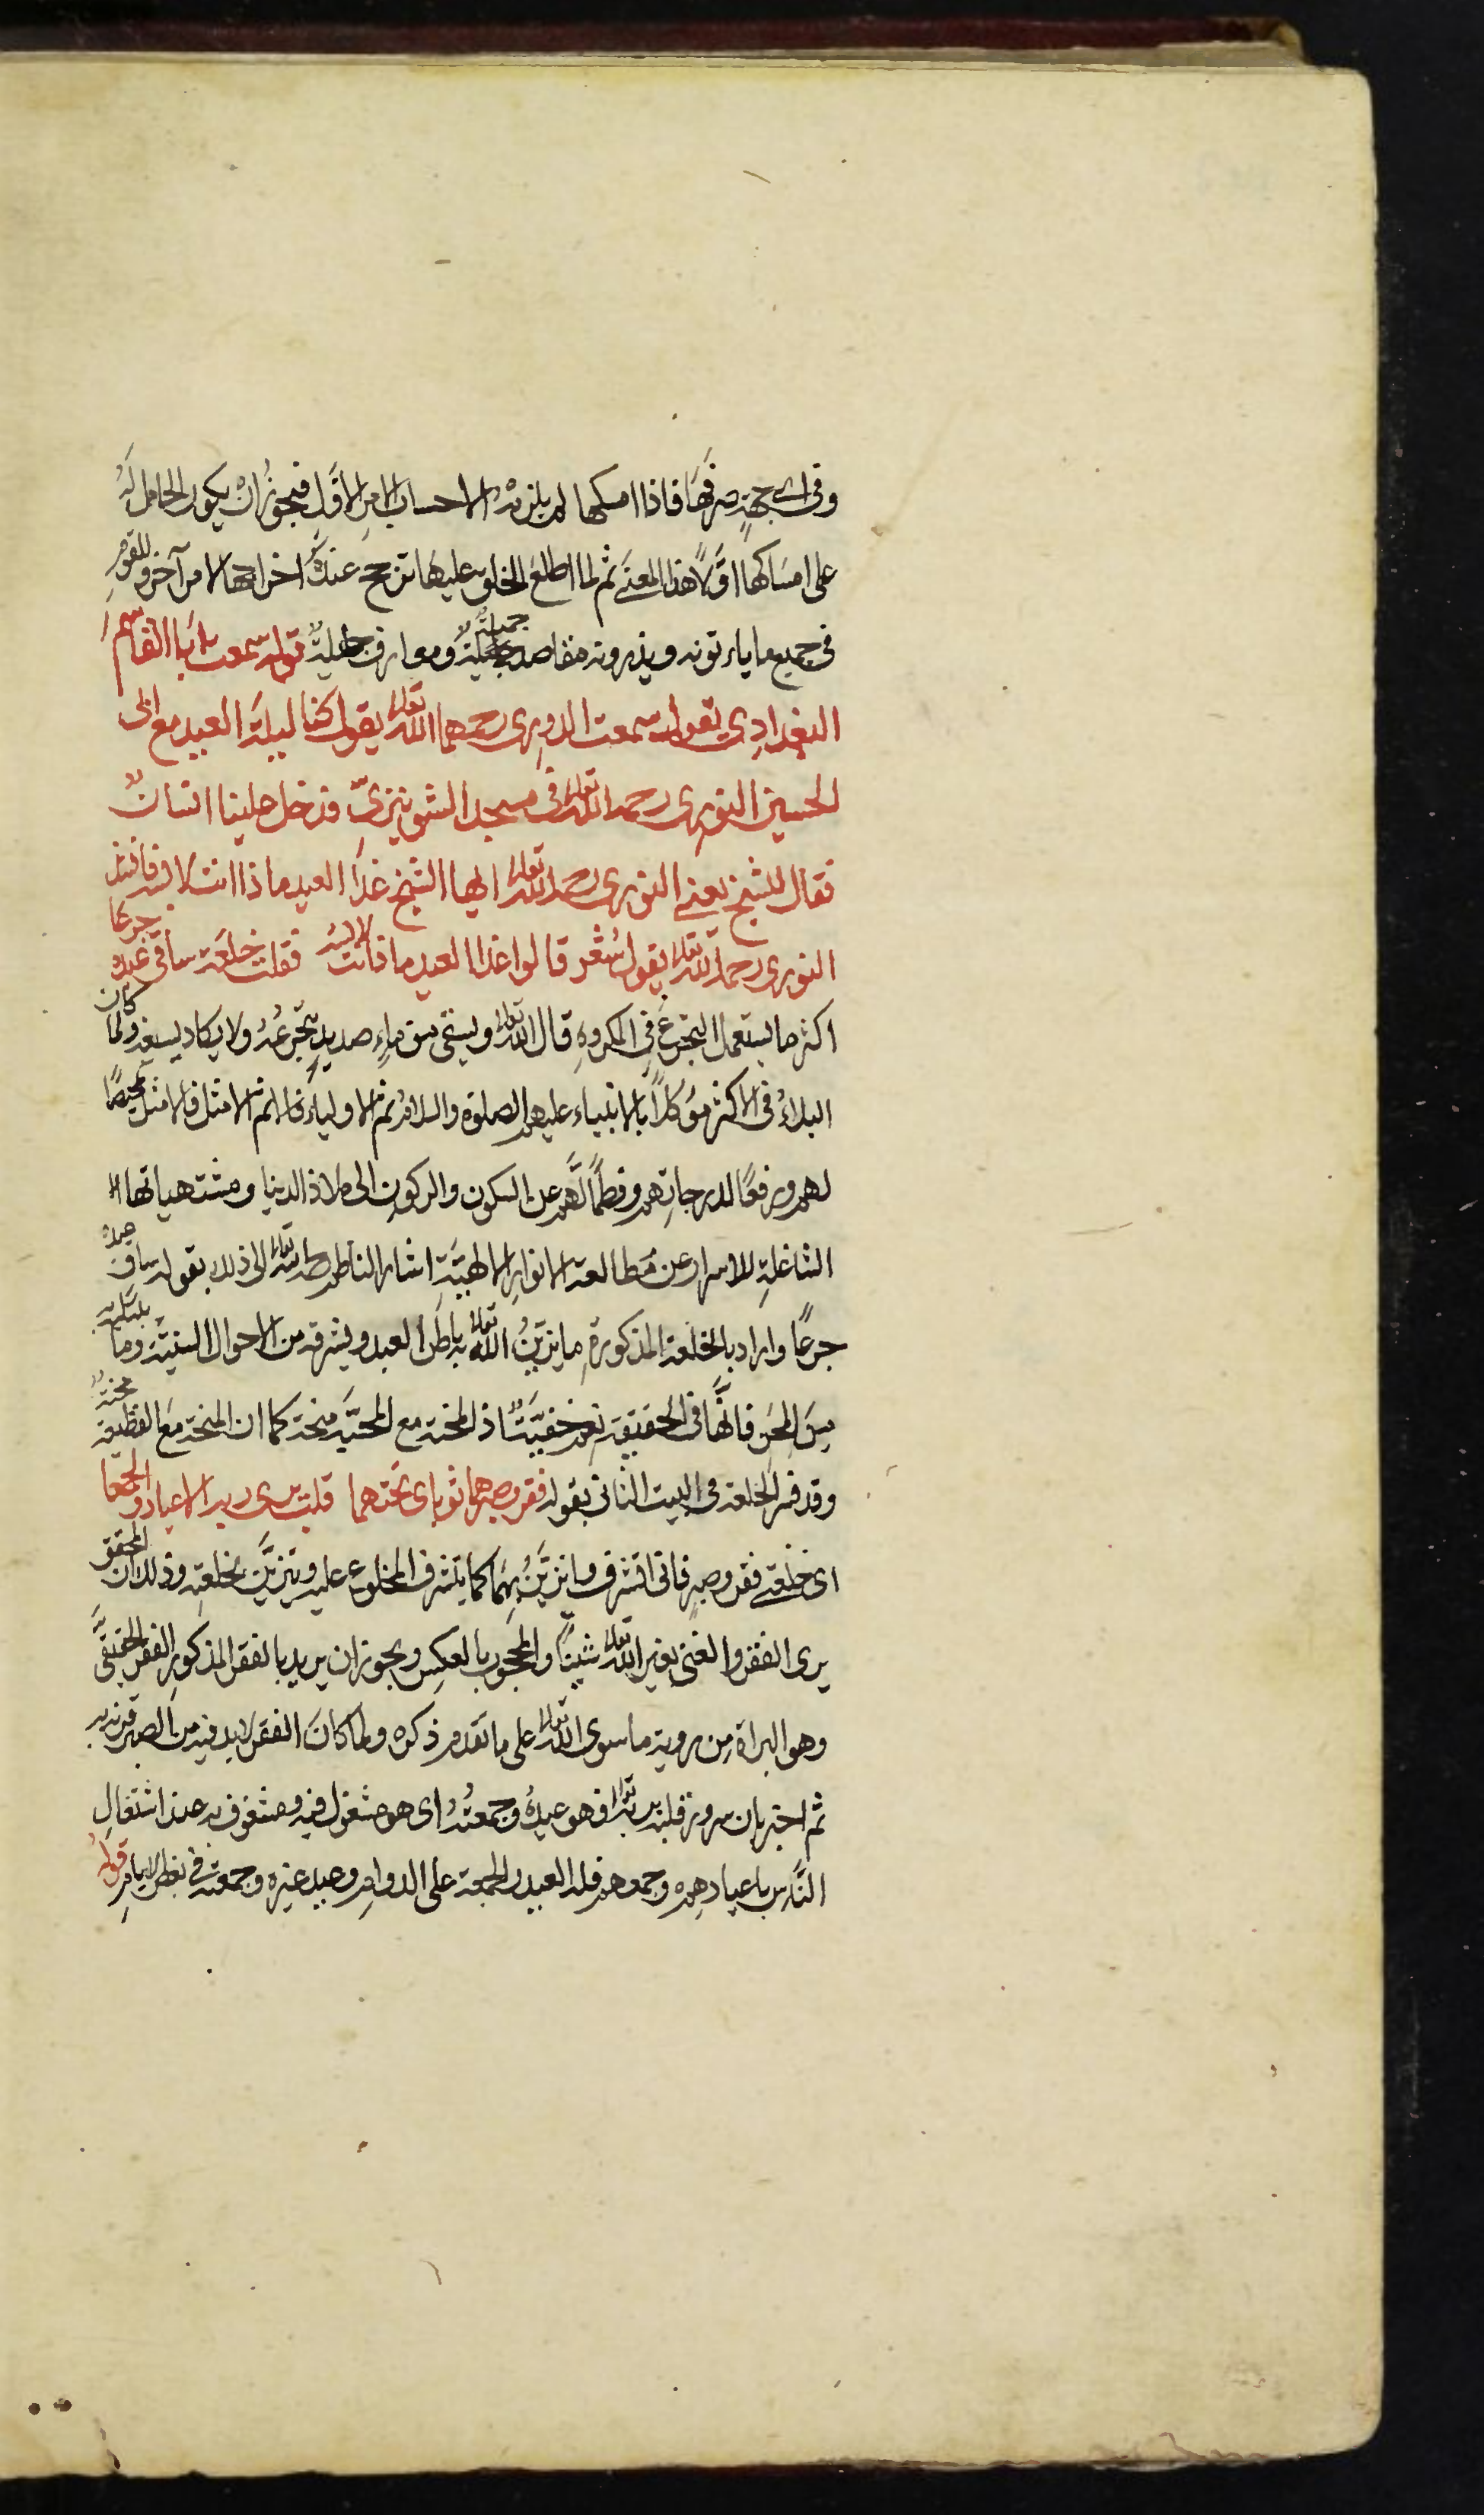 وفى اى جهةٍ صرفهَا فاذا امسكها لم يلزمه الاحساب الامرِ الاوّلِ فيجوزُ ان يكون الحامل لَهُ
على امسَاكها اوّلاً هذا المعنَى ثم لما اطلعَ الخلق عليهَا ترجح عندهُ اخراجها لامرٍ آخر وللقومِ
فى جميع ما ياءتونه ويذرونه مقاصد جميلةٌ ومعارف جليلةٌ قوله سمعت ابَا القاسم
البغدادِى يقول سمعت الدورى رحمهما الله تعالى يقول كنا ليلةَ العيد مع ابى
الحسين النورى رحمه الله تعالى فى مسجد الشونيزىّ فدخل علينا انسانٌ
فقال للشيخ يعنى النورى رحمه الله تعالى ايها الشيخ غدًا العيد ماذا انت لابسه فانشد
النورى رحمه الله تعالى يقول شعر قالوا غدا العيد ماذا انت لابسه فقلت خلعة ساقى عبده جرعا
اكثر ما يستعمل التجرع فى المكروهِ قال الله تعالى ويسقى من ماءٍ صديدٍ يتجرعُهُ ولا يكاد يسيغه ولما كان
البلاءُ فى الاكثر موَكلاً بالانبياء عليهم الصلوة والسلام ثم الاولياء ثم الامثل فالامثل تمحيصًا
لهم ورفعًا لدرجاتِهم وفطمًا لَّهم عن السكون والركونِ الى ملاذ الدنيا ومشتهياتها
الشاغلةِ للاسرار عن مَطالعة الانوارِ الالهيَّةِ اشار الناظم رحمه الله تعالى الى ذلك بقوله ساق عبده
جرعًا واراد بالخلعة المذكورةِ ما يزيّنُ الله تعالى به باطنَ العبد ويشرفه من الاحوال السنيّة وما يبتليه به
مِنَ المِحَنِ فانَّها فى الحقيقة نعم خفيَّةٌ اذ المحنة مع المحبّة منحة كما ان المنحة معَ القطيعة محنةٌ
وقد فسر الخلعة فى البيت الثانى بقوله فقر وصبر هما ثوباى تحتهما قلب يرى ربه الاعياد والجمعا
اى خلعتى فقر وصبر فانى اتشرف واتزيَّنُ بهمَا كما يتشرف المخلوع عليه ويتزيَّن بخلعتِهِ وذلك ان المحقق
يرى الفقر والغنى بغير الله تعالى شينًا والمحجوب بالعكسِ ويجوز ان يريد بالفقر المذكورِ الفقر الحقيقىَّ
وهو البراة مِن روية ما سوى الله تعالى على ما تقدم ذكره ولما كانَ الفقر لابد فيه من الصبر قرنه به
ثم اخبر بان سرور قلبه بربه تعالى فهو عيدهُ وجمعتهُ اى هو مشغول فيه ومشغوف به عند اشتغالِ
النَّاسِ باعيادِهِم وجمعهم فله العيد والجمعة على الدوامِ وعيد غيره وجمعته فى بعض الايامِ قوله